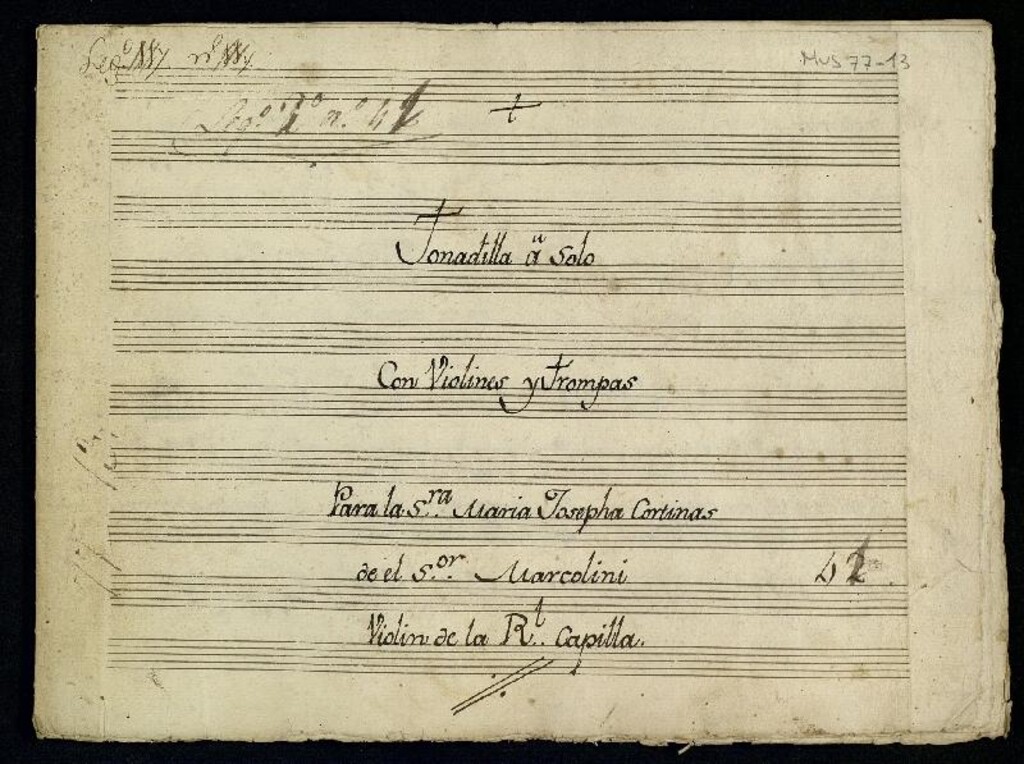 MUS 77-13
Leg.º 1º n.º 42
+
Tonadilla â Solo
Con Violines y Trompas
Para la S.ra Maria Josepha Cortinas
de el S.or Marcolini
42
Violin de la R.l Capilla.